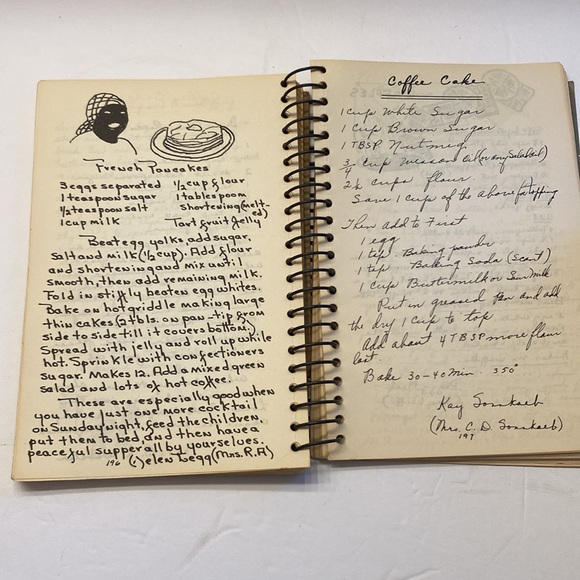 French Pancakes
3 eggs separated
1 teaspoon sugar
½ teaspoon salt
1 cup milk
½ cup flour
1 tablespoon
shortening (melt-
ed)
Tart fruit jelly
Beat egg yolks, add sugar,
salt and milk (½ cup). Add flour
and shortening and mix until
smooth, then add remaining milk.
Fold in stiffly beaten egg whites.
Bake on hot griddle making large
thin cakes (2 tbls. on pan - tip from
side to side till it covers bottom.)
Spread with jelly and roll up while
hot. Sprinkle with confectioners
sugar. Makes 12. Add a mixed green
salad and lots of hot coffee.
These are especially good when
you have just one more cocktail
on Sunday night, feed the children,
put them to bed, and then have a
peaceful supper all by yourselves.
196 Legg (Mrs. R.A)
Coffee Cake
1 Cup White Sugar
1 Cup Brown Sugar
1 TBSP Nutmeg
¾ Cup Wesson Oil (or any Salad oil)
2½ Cups flour
Save 1 cup of the above for topping
Then add to First
1 egg
1 tsp. Baking powder
1 tsp Baking Soda (scant)
1 cup Buttermilk or Sour Milk
Put in greased pan and add
the dry 1 cup to top
Add about 4 TBSP more flour
last.
Bake 30-40 min. 350°
Kay
(Mrs. C. D.
197